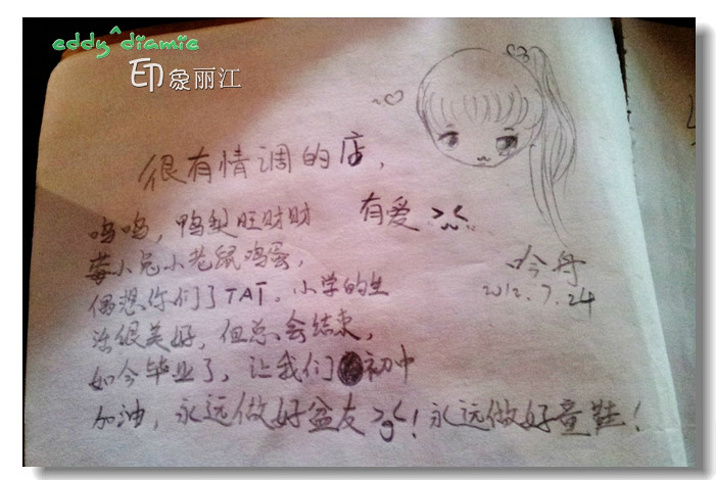 eddy^diamie
印象丽江
很有情调的店,
有爱 >~<
呜呜,鸭梨旺财财
莓小兔小老鼠鸡蛋,
偶想你们了TAT。小学的生
活很美好,但总会结束,
如今毕业了,让我们初中
加油,永远做好盆友>3<!永远做好童鞋!
吟舟
2012.7.24